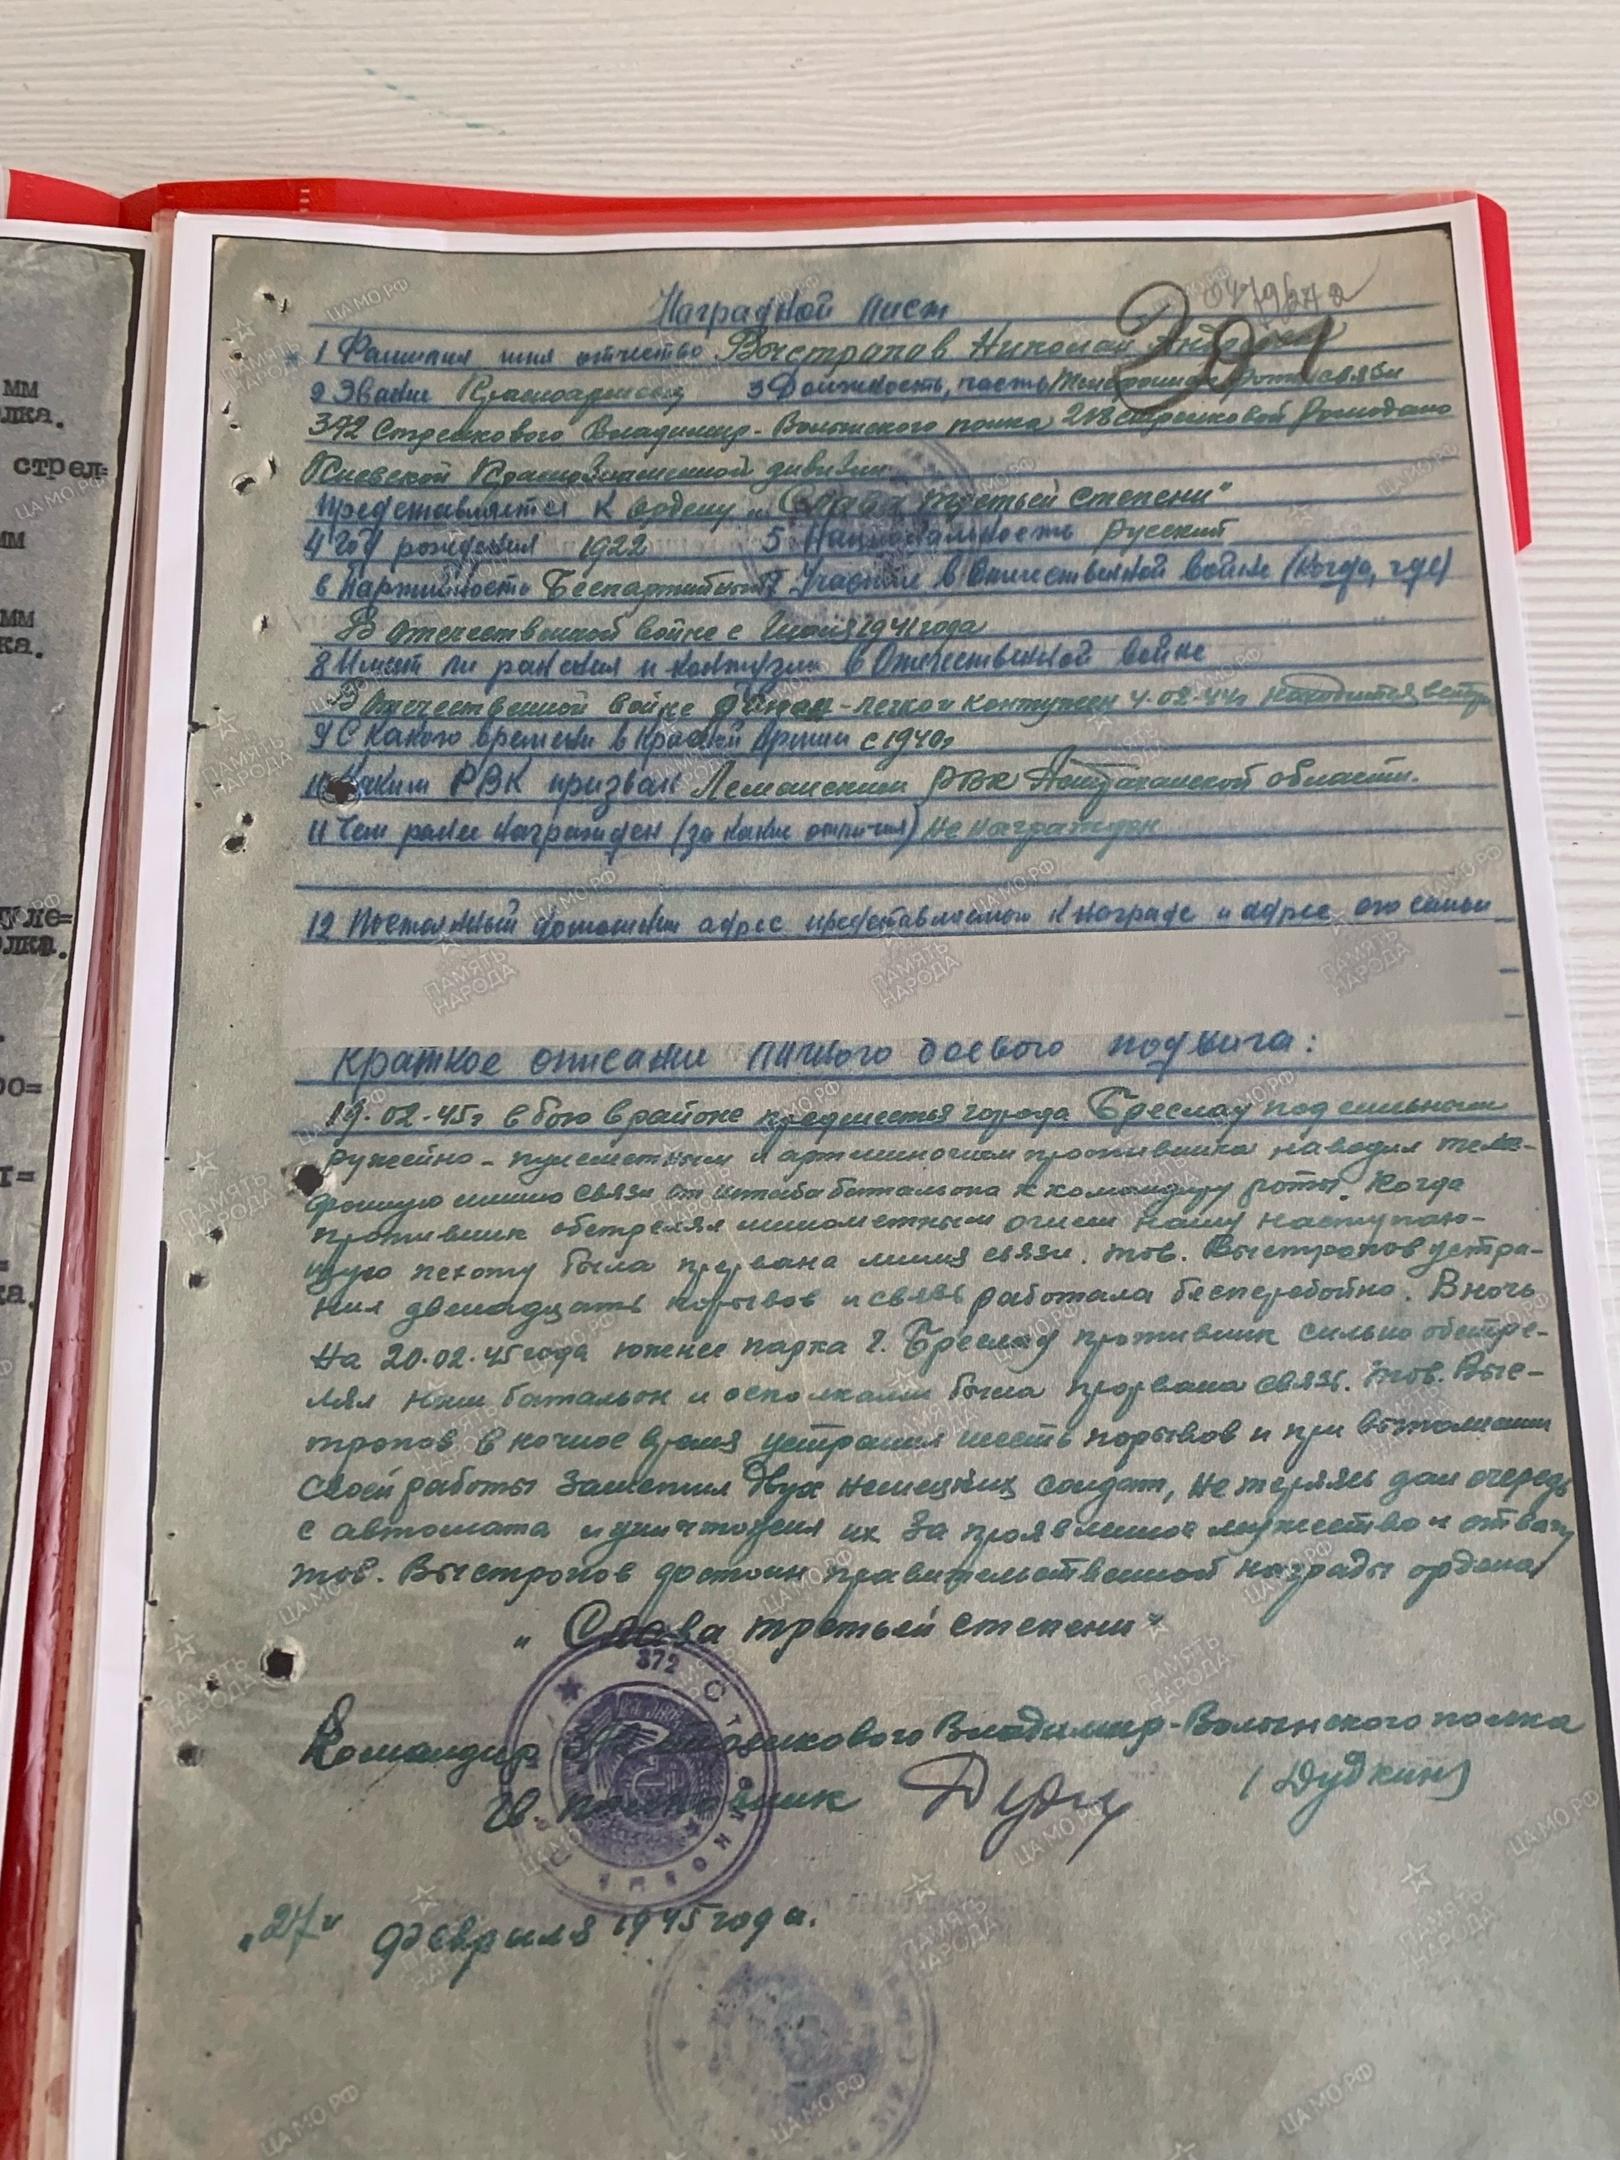 Наградной лист
1 Фамилия имя отчество Выстропов Николай
2 Звание Красноармеец 3 Должность, часть Телефонист роты связи
стрелкового Владимир-Волынского полка 218 стрелковой Ромодано
Киевской Краснознаменной дивизии
Представляется к ордену „Слава третьей степени"
4 Год рождения 1922 5 Национальность русский
6 Партийность Беспартийный 7 Участие в Отечественной войне (когда, где)
В отечественной войне с 1941 года
8 Имеет ли ранения и контузии в Отечественной войне
В Отечественной войне легко контужен 4.02.44г находится
9 С какого времени в Красной Армии с 1940г
10 Каким РВК призван РВК Астраханской области.
11 Чем ранее награжден (за какие отличия) не награжден
12 Постоянный домашний адрес представляемого к награде и адрес его семьи
Краткое описание личного боевого подвига:
19.02.45г в бою в районе предместья города Бреслау под сильным
ружейно-пулеметным и артиллер огнем противника наводил теле-
фонную линию связи от штаба батальона к командиру роты. Когда
противник обстрелял минометным огнем нашу наступаю-
щую пехоту была прервана линия связи. тов. Выстропов устра-
нил двенадцать порывов и связь работала бесперебойно. В ночь
на 20.02.45 года южнее парка г. Бреслау противник сильно обстре-
лял наш батальон и осколками была прорвана связь. тов. Выс-
тропов в ночное время устранил шесть порывов и при выполнении
своей работы заметил двух немецких солдат, не теряясь дал очередь
с автомата и уничтожил их. За проявленное мужество и отвагу
тов. Выстропов достоин правительственной награды ордена
„Слава третьей степени"
Командир стрелкового Владимир-Волынского полка
полковник (Дудкин)
„27" февраля 1945 года.